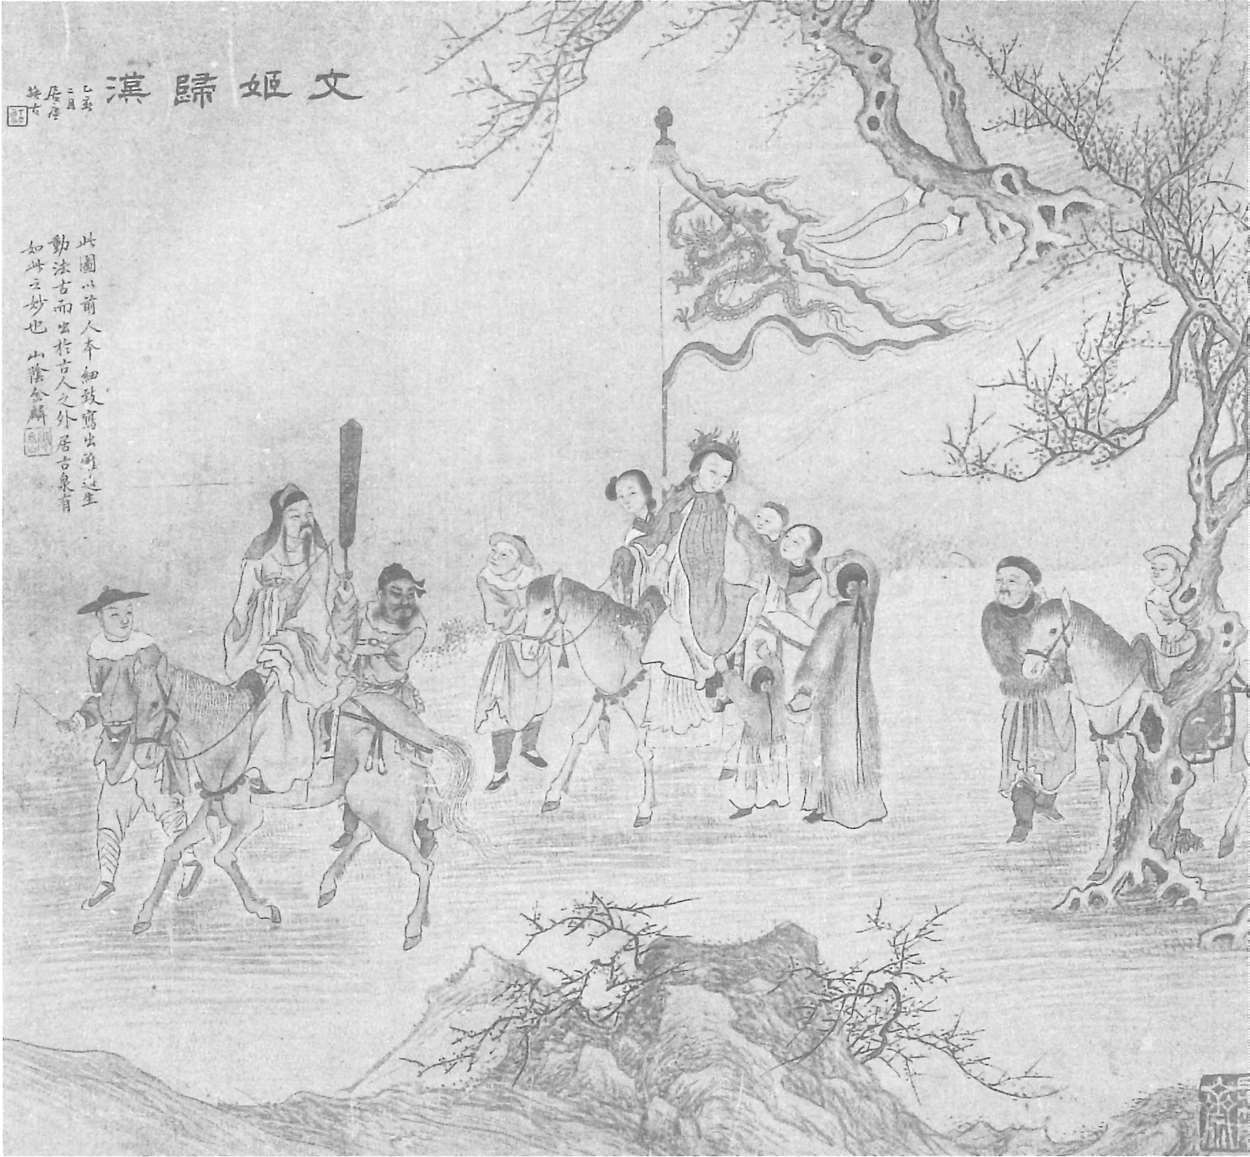 文姬歸漢
乙亥
二月
居廉
橅古
此圖以前人本細致寫出雖
動法古而出於古人之外居古泉有
如此之妙也 山陰